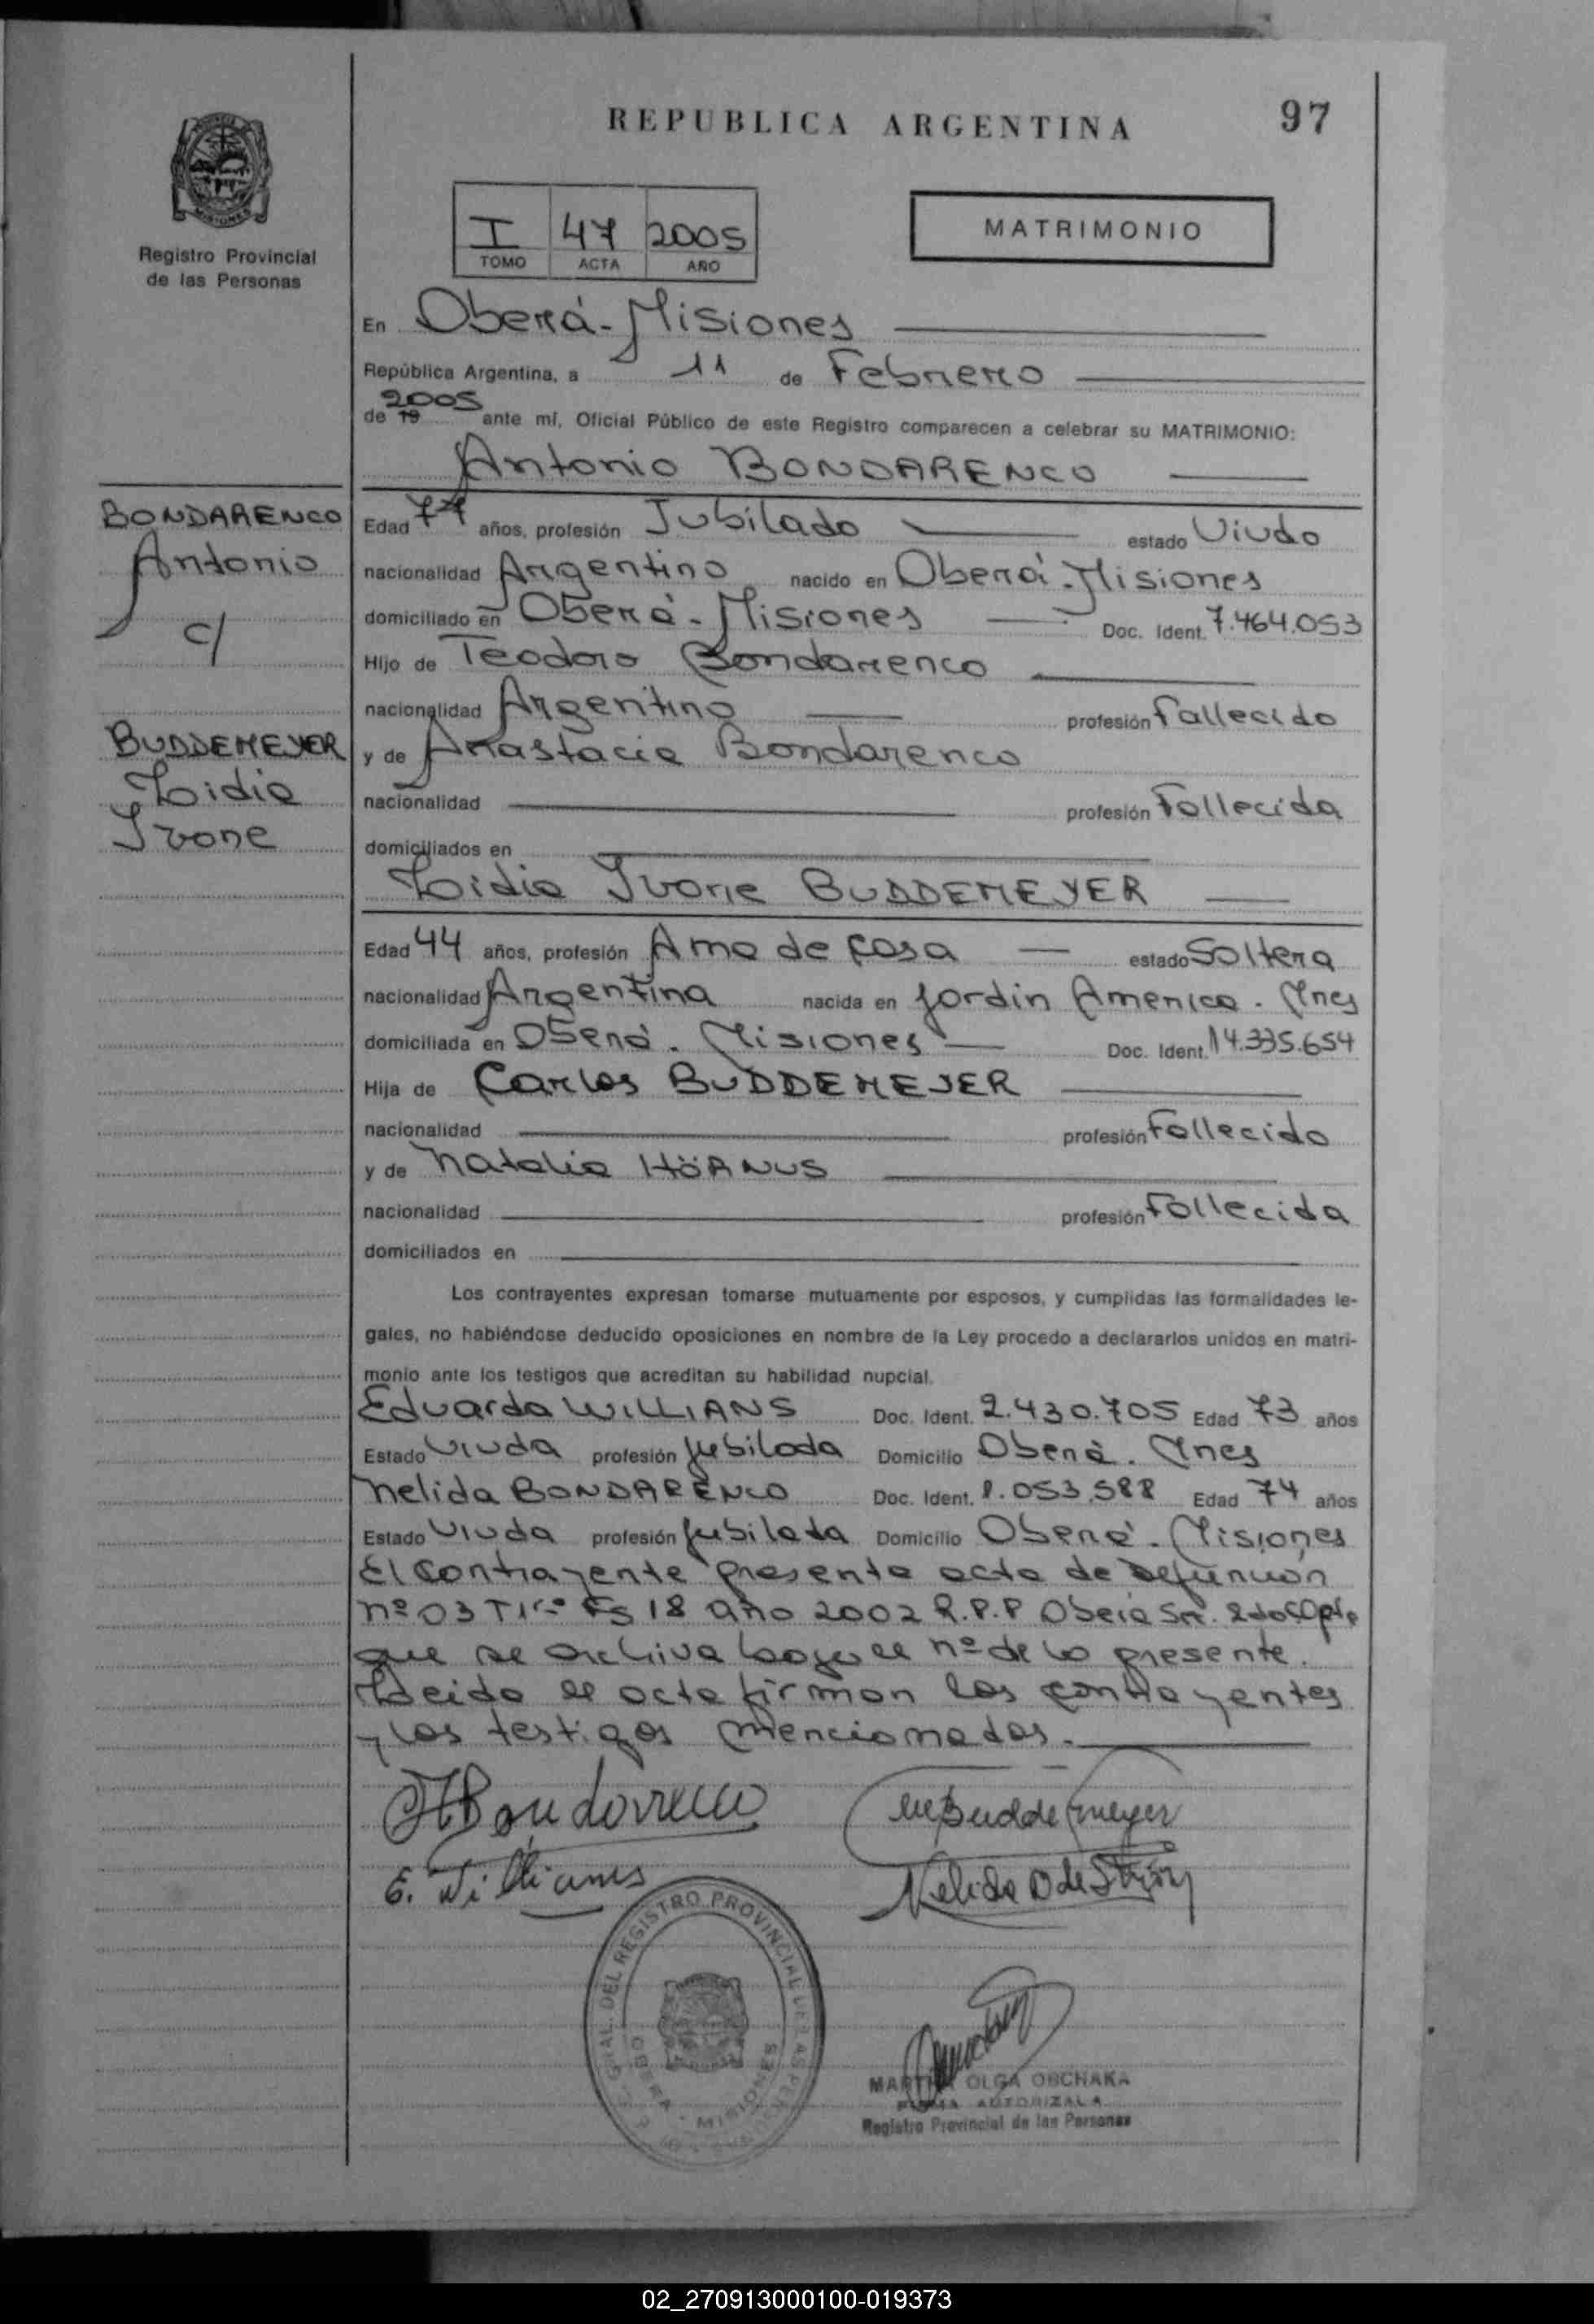 REPUBLICA ARGENTINA 97
Registro Provincial
de las Personas
I 47 2005
TOMO ACTA AÑO
MATRIMONIO
En Oberá - Misiones
República Argentina, a 11 de Febrero
de 19 2005 ante mí, Oficial Público de este Registro comparecen a celebrar su MATRIMONIO:
Antonio BONDARENCO
BONDARENCO
Antonio
c/
BUDDEMEYER
Lidia
Ivone
Edad 77 años, profesión Jubilado estado Viudo
nacionalidad Argentino nacido en Oberá - Misiones
domiciliado en Oberá - Misiones Doc. Ident. 7.464.053
Hijo de Teodoro Bondarenco
nacionalidad Argentino profesión Fallecido
y de Anastacia Bondarenco
nacionalidad profesión Fallecida
domiciliados en
Lidia Ivone BUDDEMEYER
Edad 44 años, profesión Ama de Casa estado Soltera
nacionalidad Argentina nacida en Jardin America. Mnes
domiciliada en Oberá. Misiones Doc. Ident. 14.335.654
Hija de Carlos BUDDEMEJER
nacionalidad profesión Fallecido
y de Natalia HÖRNUS
nacionalidad profesión Fallecida
domiciliados en
Los contrayentes expresan tomarse mutuamente por esposos, y cumplidas las formalidades le-
gales, no habiéndose deducido oposiciones en nombre de la Ley procedo a declararlos unidos en matri-
monio ante los testigos que acreditan su habilidad nupcial.
Eduarda WILLIANS Doc. Ident. 2.430.705 Edad 73 años
Estado Viuda profesión Jubilada Domicilio Oberá. Mnes
Nelida BONDARENCO Doc. Ident. 1.053.588 Edad 74 años
Estado Viuda profesión Jubilada Domicilio Oberá - Misiones
El contrayente presenta acta de defunción
nº 03 Tº Fs 18 año 2002 R.P.P Oberá
que se archiva bajo el nº de la presente.
Leida el acta firman los contrayentes
y los testigos mencionados.
E. Williams
Nelida B de
REGISTRO PROVINCIAL DE LAS PERSONAS
OBERA - MISIONES
OLGA OBCHAKA
FIRMA AUTORIZADA
Registro Provincial de las Personas
02_270913000100-019373